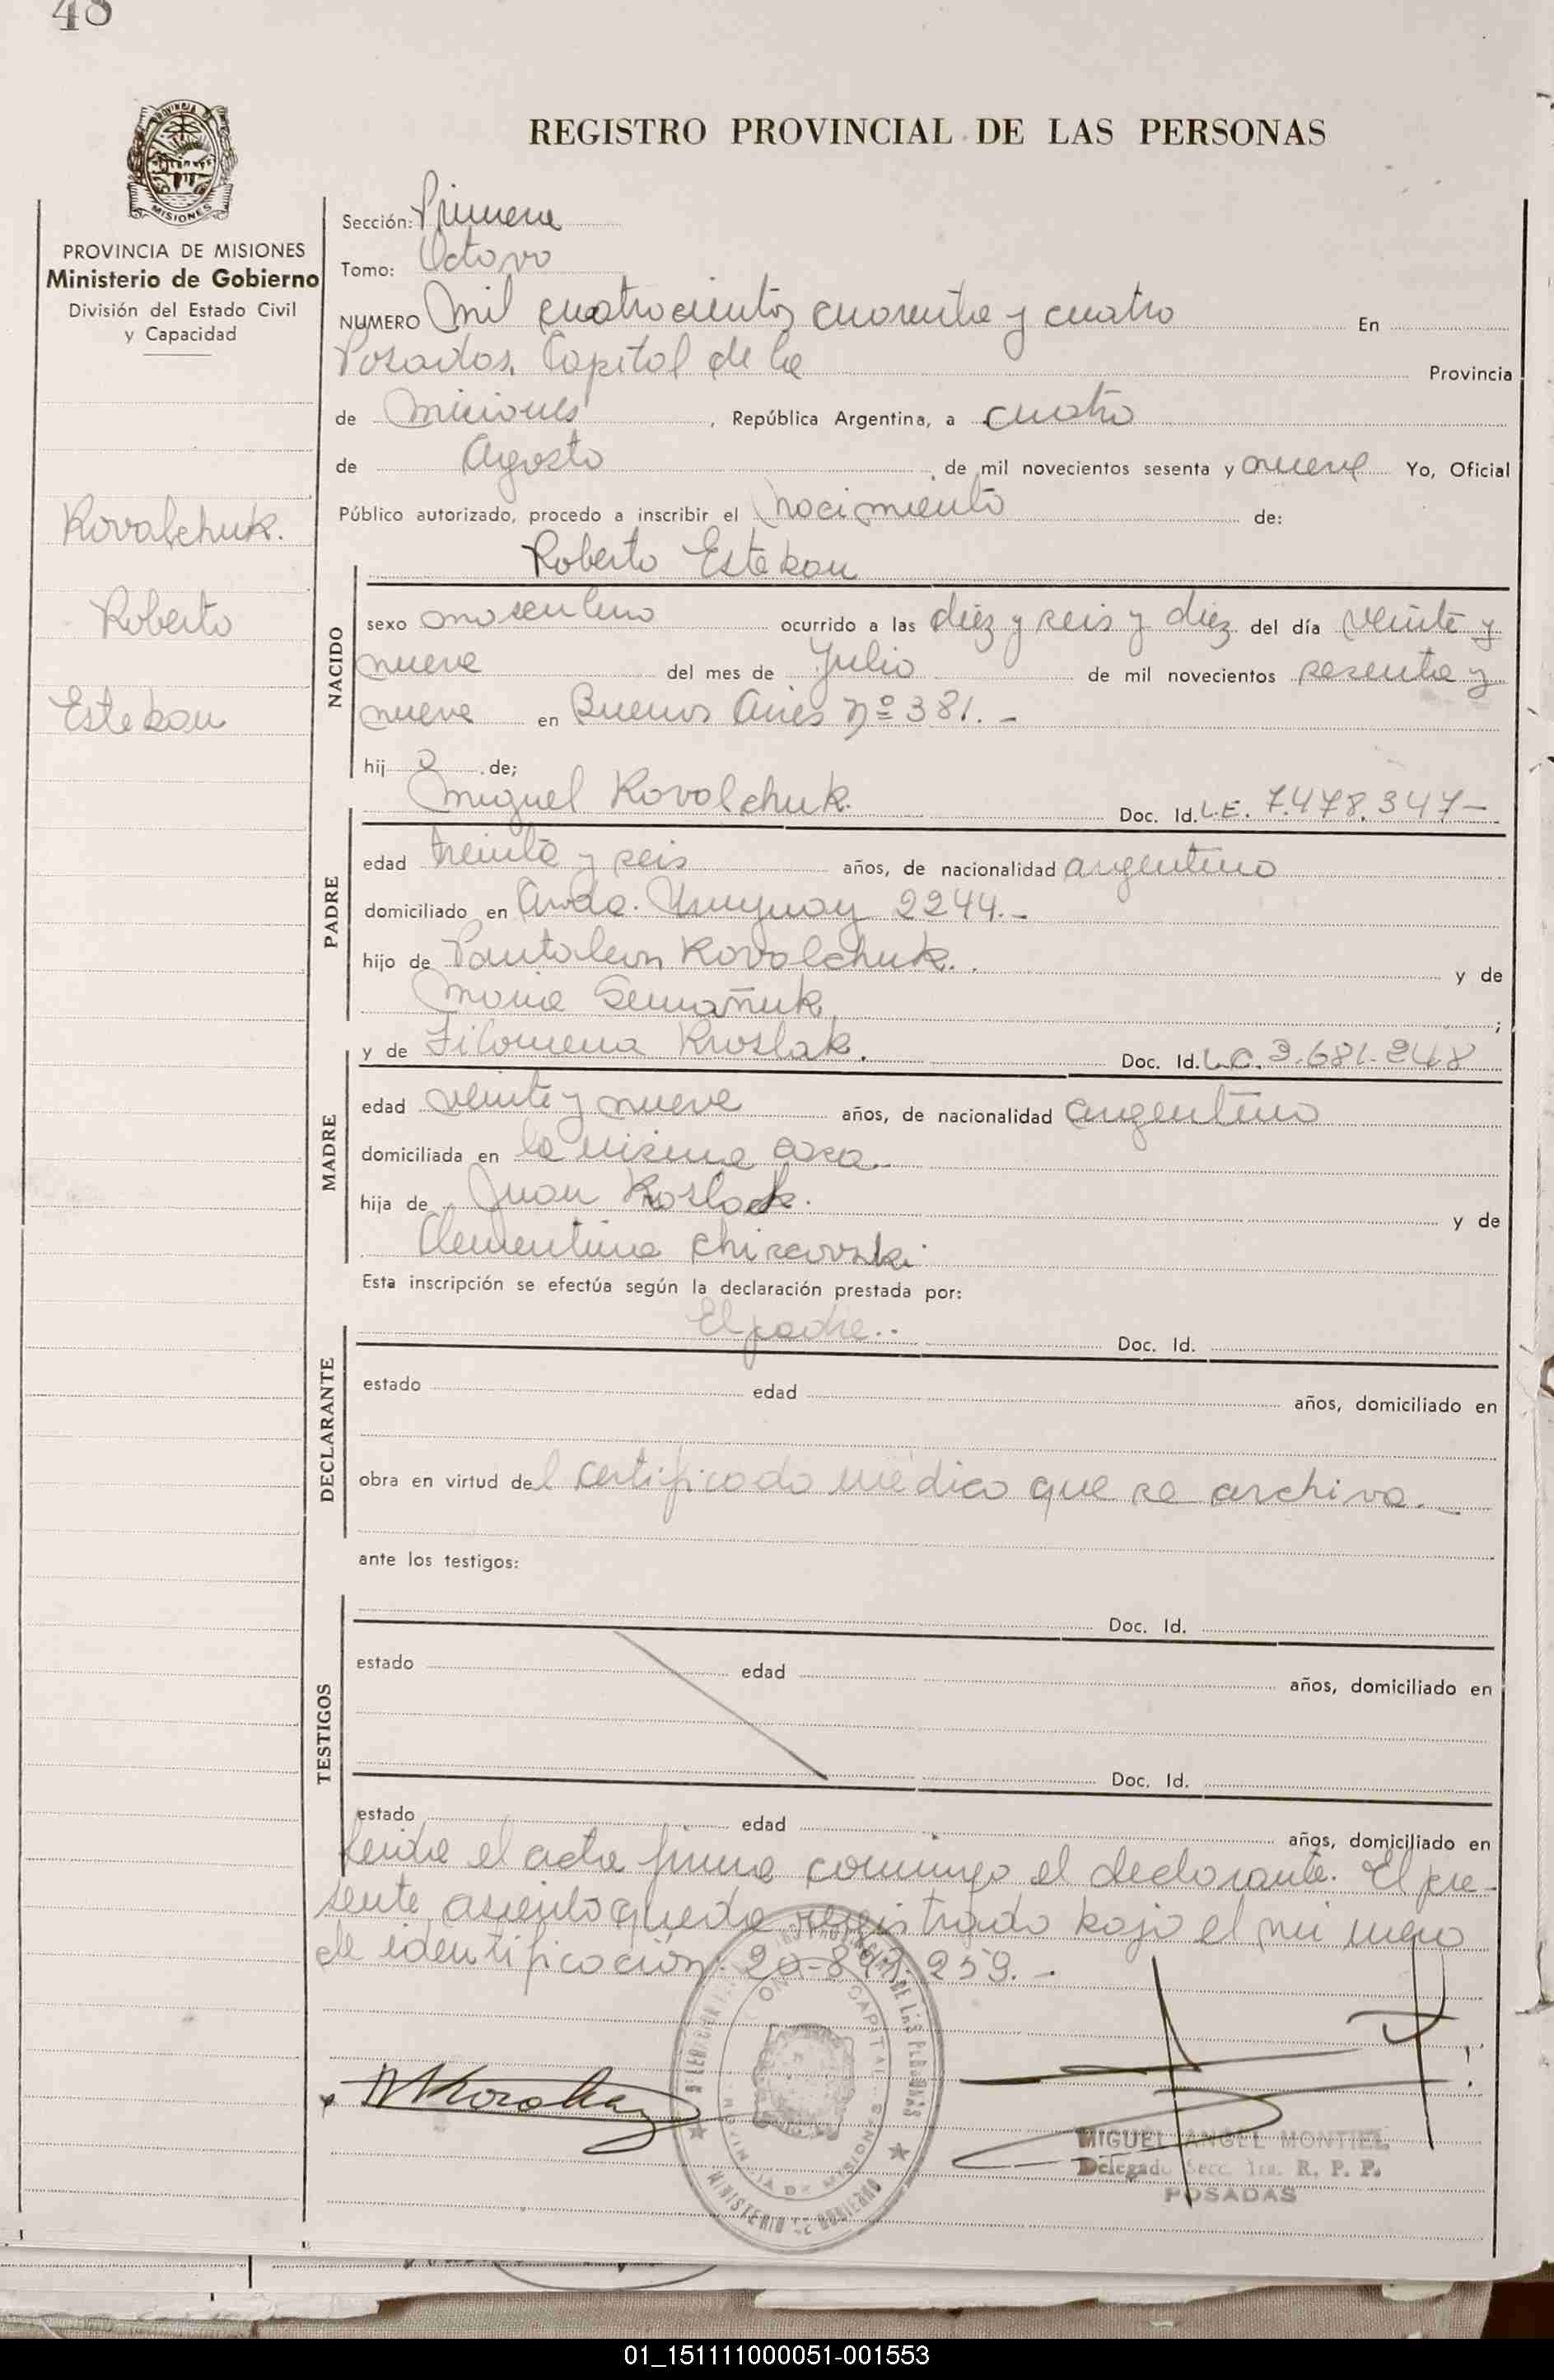 48
MISIONES
PROVINCIA DE MISIONES
Ministerio de Gobierno
División del Estado Civil
y Capacidad
Kovalchuk.
Roberto
Esteban
REGISTRO PROVINCIAL DE LAS PERSONAS
Sección: Primera
Tomo: Octavo
NUMERO Mil cuatrocientos cuarenta y cuatro En
Posadas, Capital de la Provincia
de Misiones, República Argentina, a cuatro
de Agosto de mil novecientos sesenta y nueve Yo, Oficial
Público autorizado, procedo a inscribir el nacimiento de:
Roberto Esteban
NACIDO
sexo masculino ocurrido a las diez y seis y diez del día veinte y
nueve del mes de Julio de mil novecientos sesenta y
nueve en Buenos Aires Nº 381.-
hij o de;
Miguel Kovalchuk. Doc. Id. L.E. 7.478.347-
PADRE
edad treinta y seis años, de nacionalidad argentino
domiciliado en Avda. Uruguay 2244.-
hijo de Pantaleon Kovalchuk. y de
Maria Semañuk ;
y de Filomena Kroslak. Doc. Id. L.C. 3.681.248
MADRE
edad veinte y nueve años, de nacionalidad argentina
domiciliada en la misma casa.
hija de Juan y de
Clementina
Esta inscripción se efectúa según la declaración prestada por:
El padre.. Doc. Id.
DECLARANTE
estado edad años, domiciliado en
obra en virtud del certificado médico que se archiva.-
ante los testigos:
TESTIGOS
Doc. Id.
estado edad años, domiciliado en
Doc. Id.
estado edad años, domiciliado en
Leida el acta firma conmigo el declarante. El pre-
sente asiento queda registrado bajo el número
de identificación: 20-897.259.-
MINISTERIO DE GOBIERNO
PROVINCIA DE MISIONES
CAPITAL
DE LAS PERSONAS
MIGUEL ANGEL MONTIEL
Delegado Secc. 1ra. R. P. P.
POSADAS
01_151111000051-001553